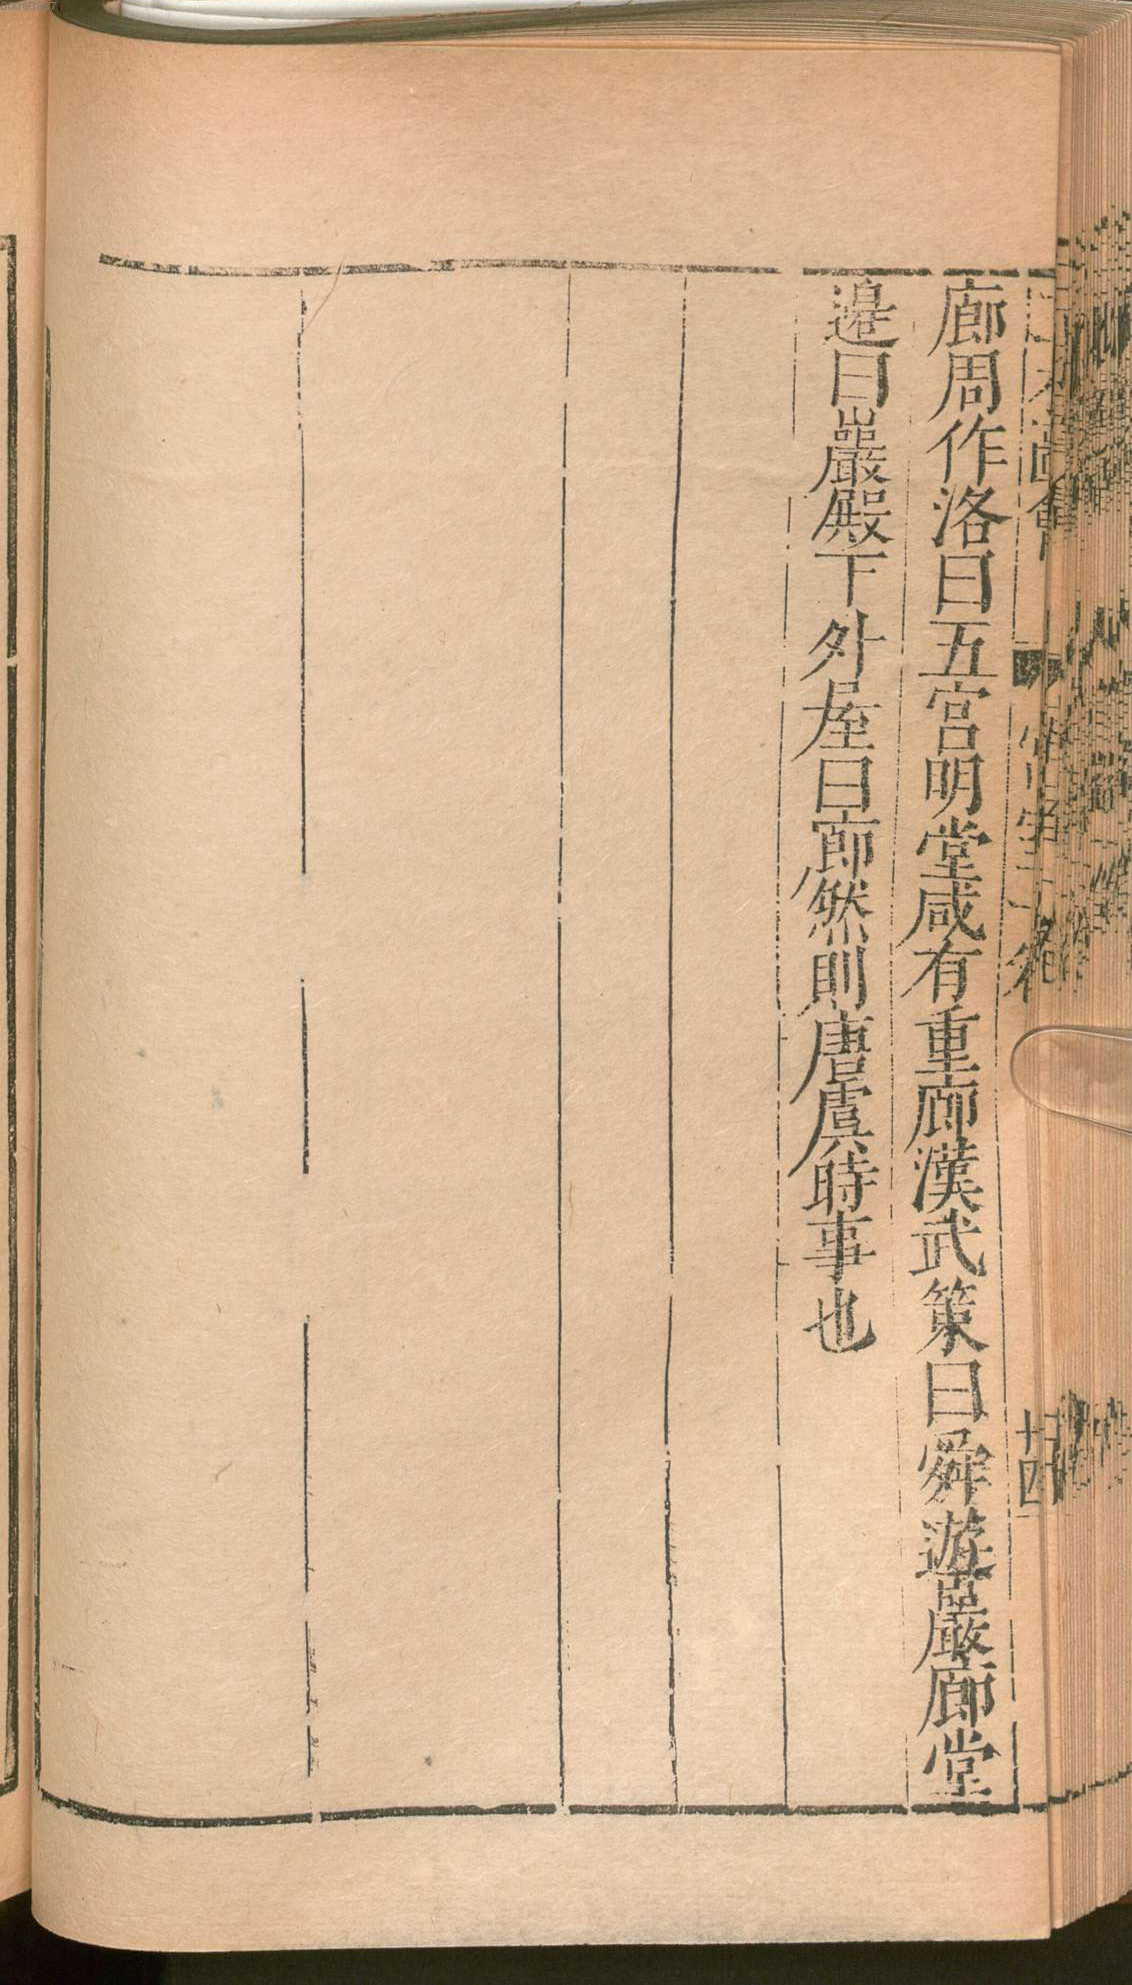 廊周作洛曰五宮明堂咸有重廊漢武策曰舜遊巖廊堂
邉曰巖殿下外屋曰廊然則唐虞時事也
圖會
宮室一卷
廿四